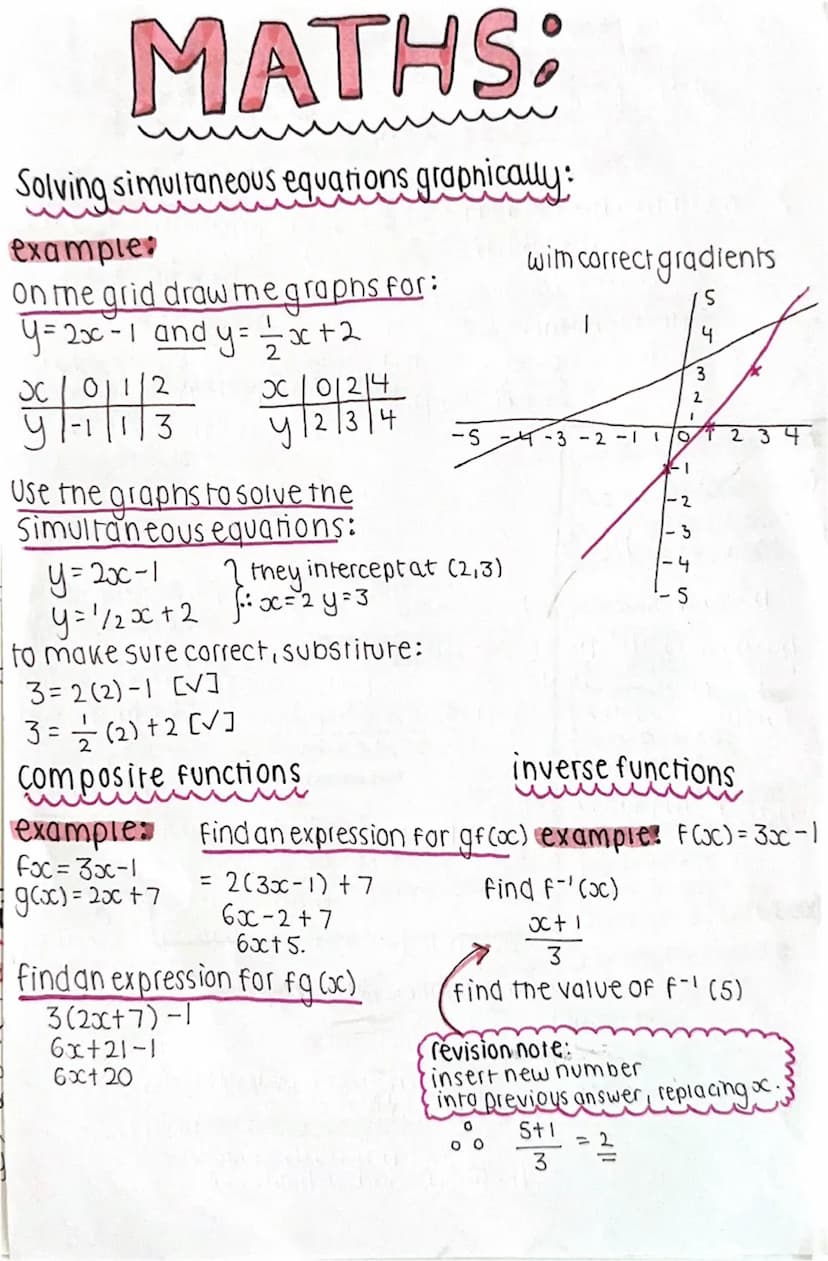 MATHS:
Solving simultaneous equations graphically:
example:
on the grid draw the graphs for:
y = 2x - 1 and y = 1/2 x + 2
x | 0 | 1 | 2
y | -1 | 1 | 3
x | 0 | 2 | 4
y | 2 | 3 | 4
with correct gradients
5
4
3
2
1
-5 -4 -3 -2 -1 0 1 2 3 4
-1
-2
-3
-4
-5
Use the graphs to solve the
simultaneous equations:
y = 2x - 1 } they intercept at (2,3)
y = 1/2 x + 2 } ∴ x = 2 y = 3
to make sure correct, substitute:
3 = 2(2) - 1 [√]
3 = 1/2 (2) + 2 [√]
composite functions
example:
fx = 3x - 1
g(x) = 2x + 7
find an expression for gf(x)
= 2(3x - 1) + 7
6x - 2 + 7
6x + 5.
find an expression for fg(x)
3(2x + 7) - 1
6x + 21 - 1
6x + 20
inverse functions
example: f(x) = 3x - 1
find f⁻¹(x)
x + 1
3
find the value of f⁻¹(5)
revision note:
insert new number
into previous answer, replacing x.
∴ 5+1 = 2
3